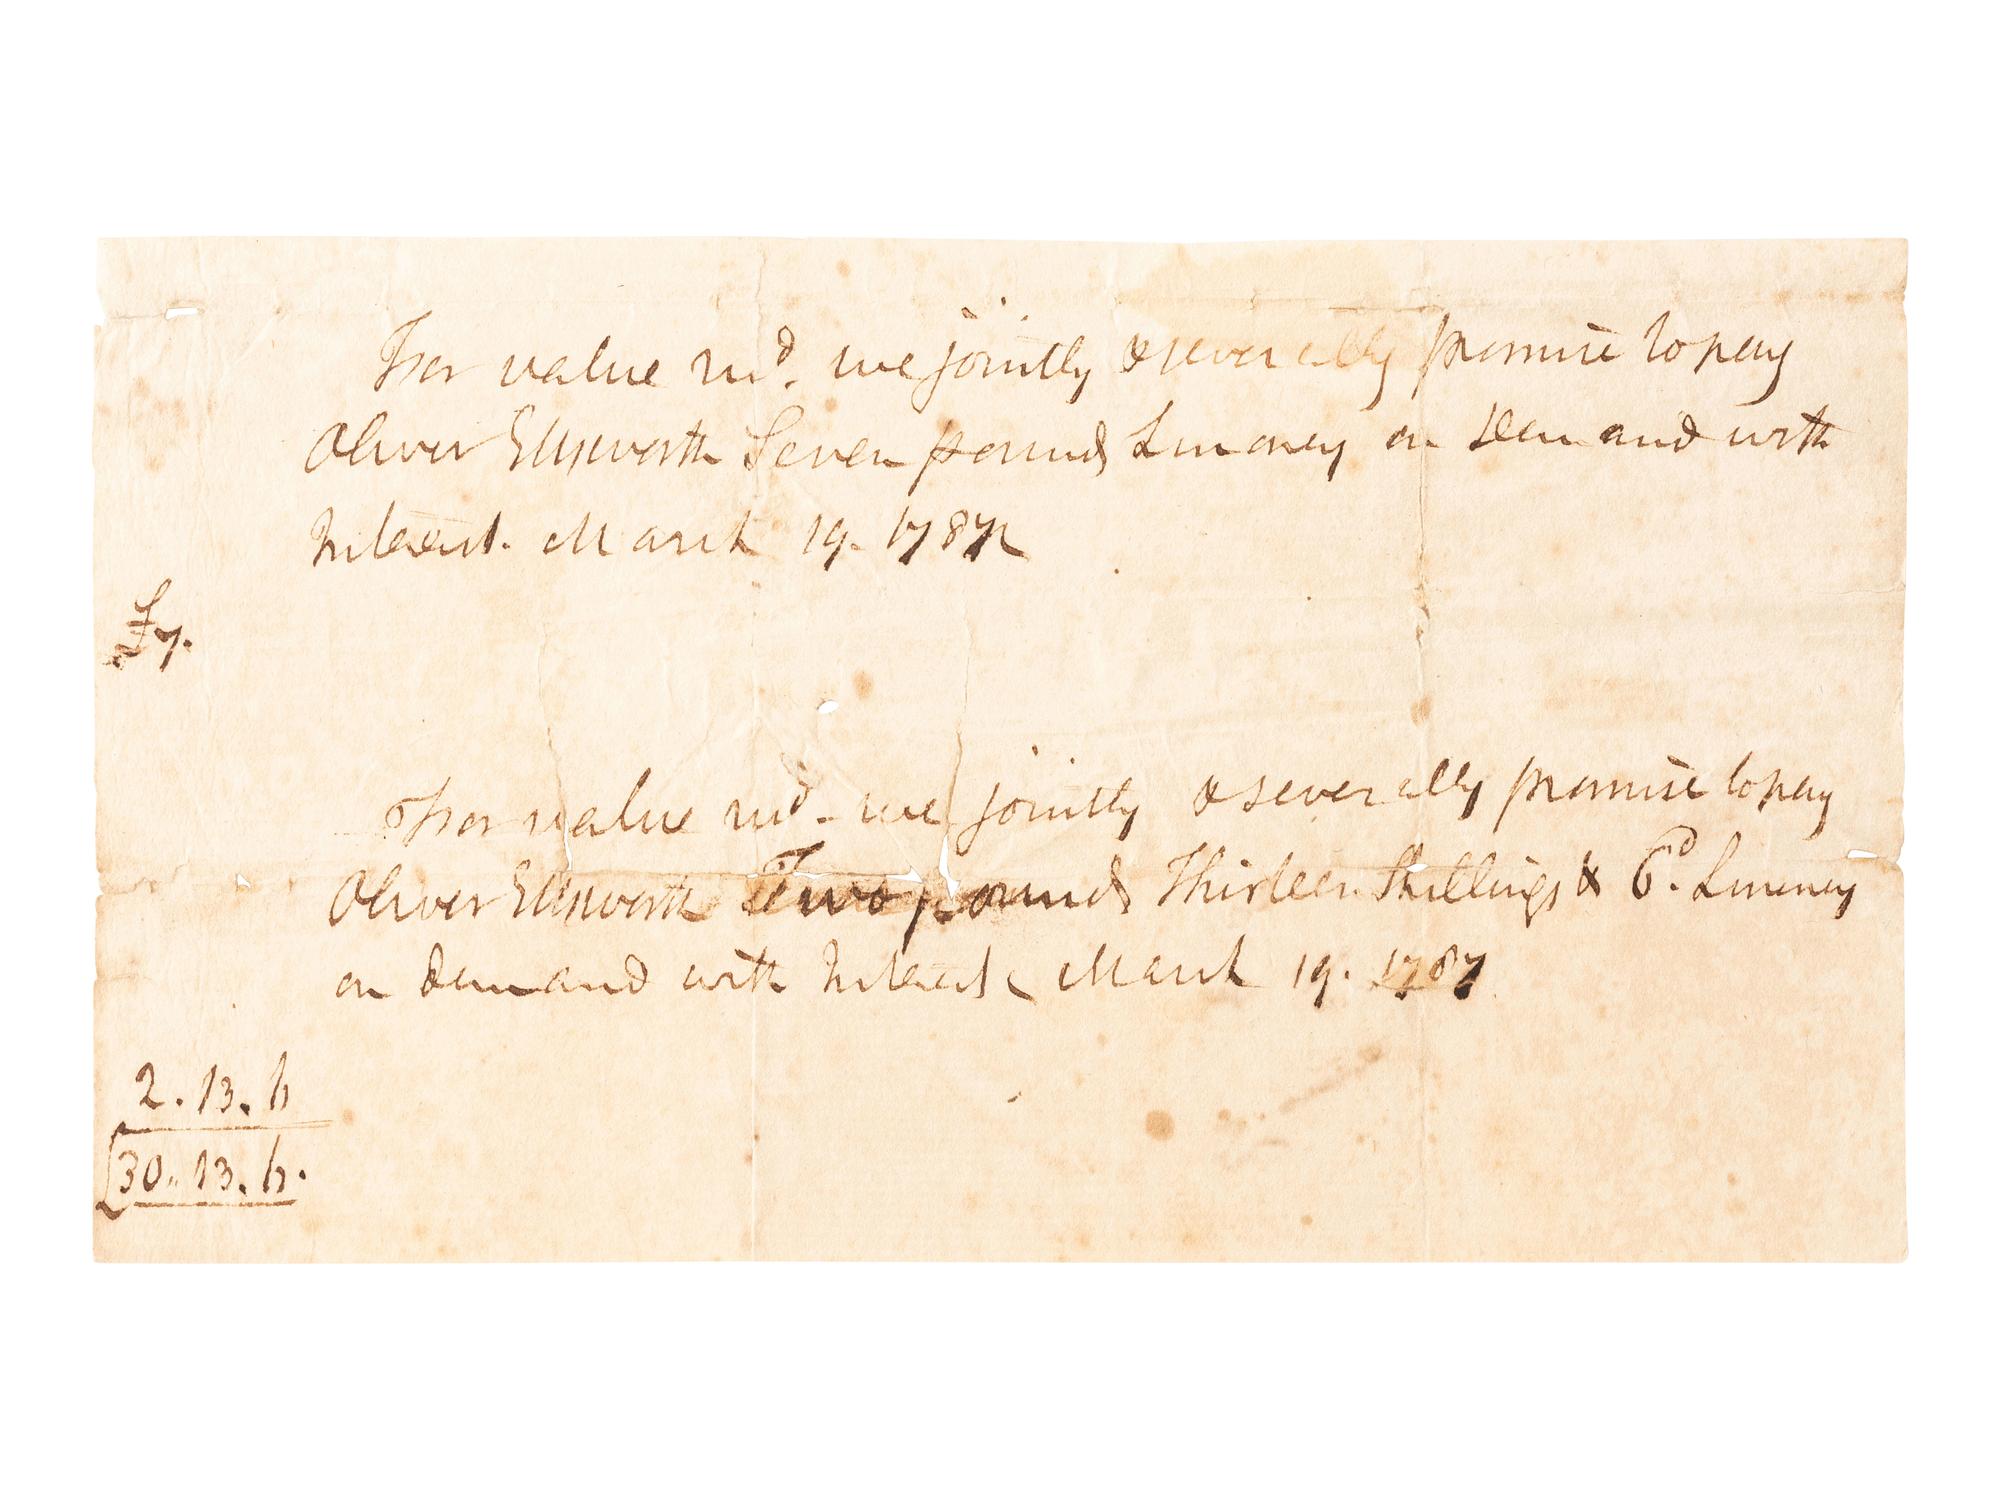 For value recd. we jointly & severally promise to pay
Oliver Ellsworth Seven pounds L money on Demand with
Interest. March 19. 1787
£7.
For value recd. we jointly & severally promise to pay
Oliver Ellsworth Two pounds Thirteen Shillings & 6d. L money
on demand with Interest March 19. 1787
2. 13. 6
30.. 13. 6.